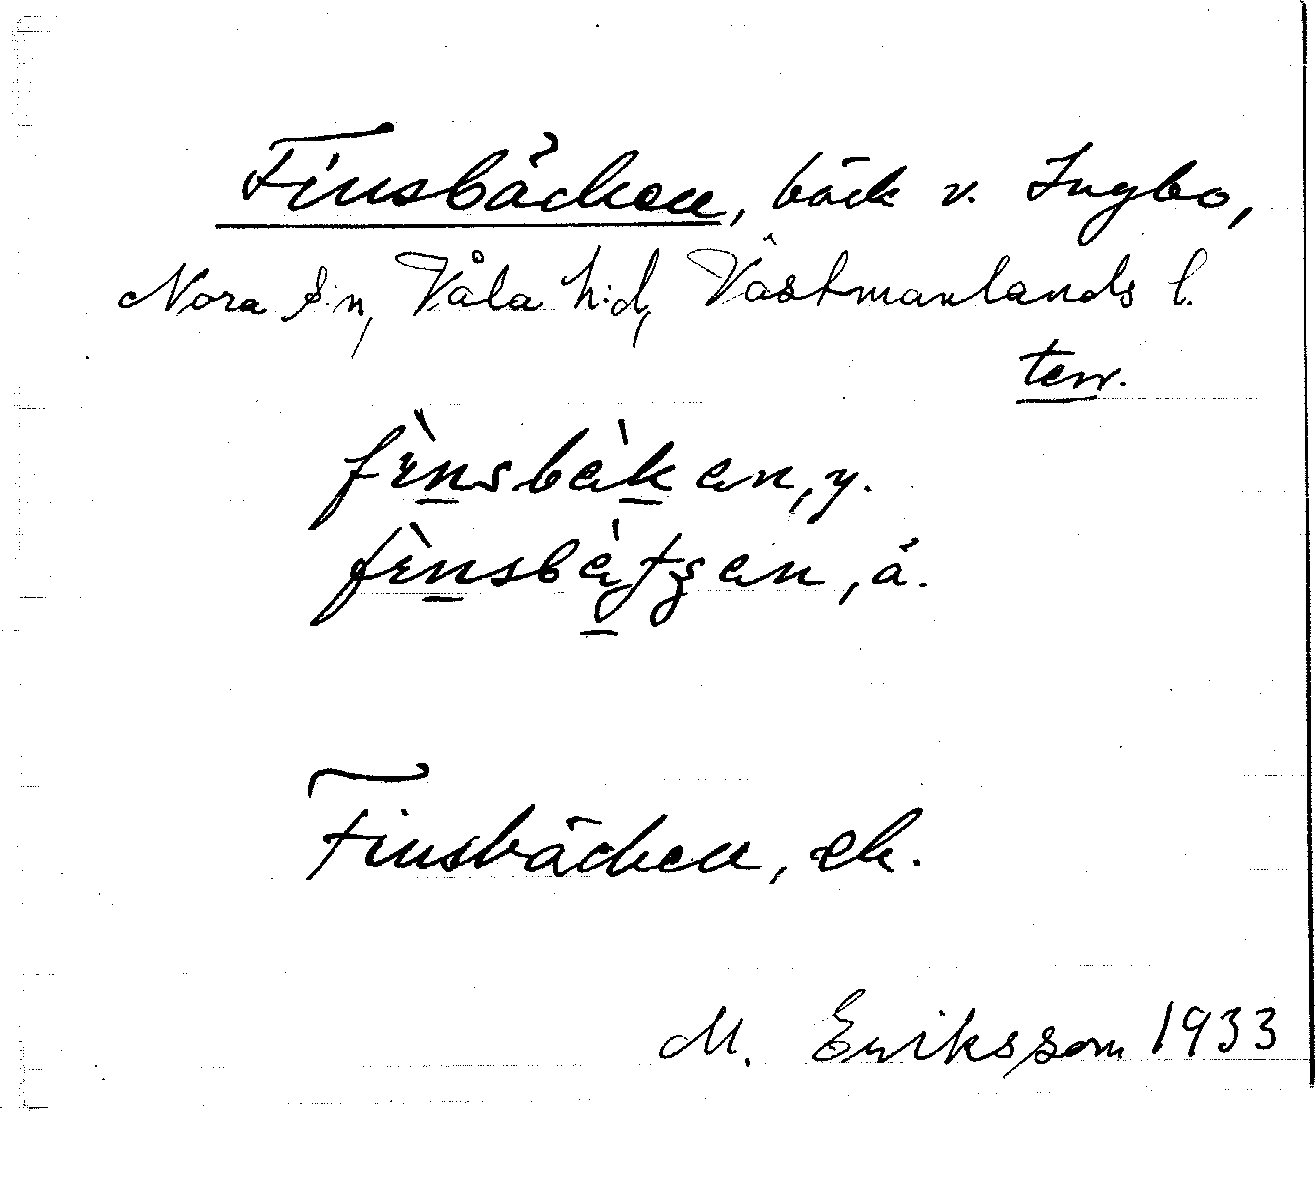 Finsbäcken, bäck v. Ingbo,
Nora s:n, Våla h:d, Västmanlands l.
terr.
fìnsbàkan, y.
fìnsbàtʒan, ä.
Finsbäcken, ek.
M. Eriksson 1933